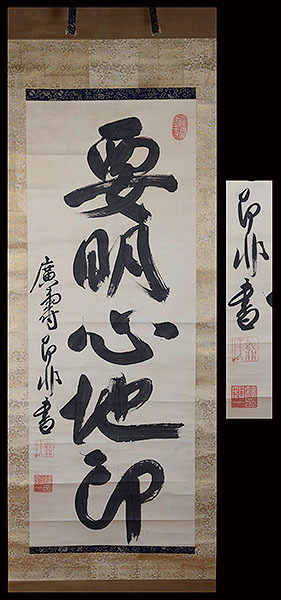 要明心地印
廣壽即非書
即非書